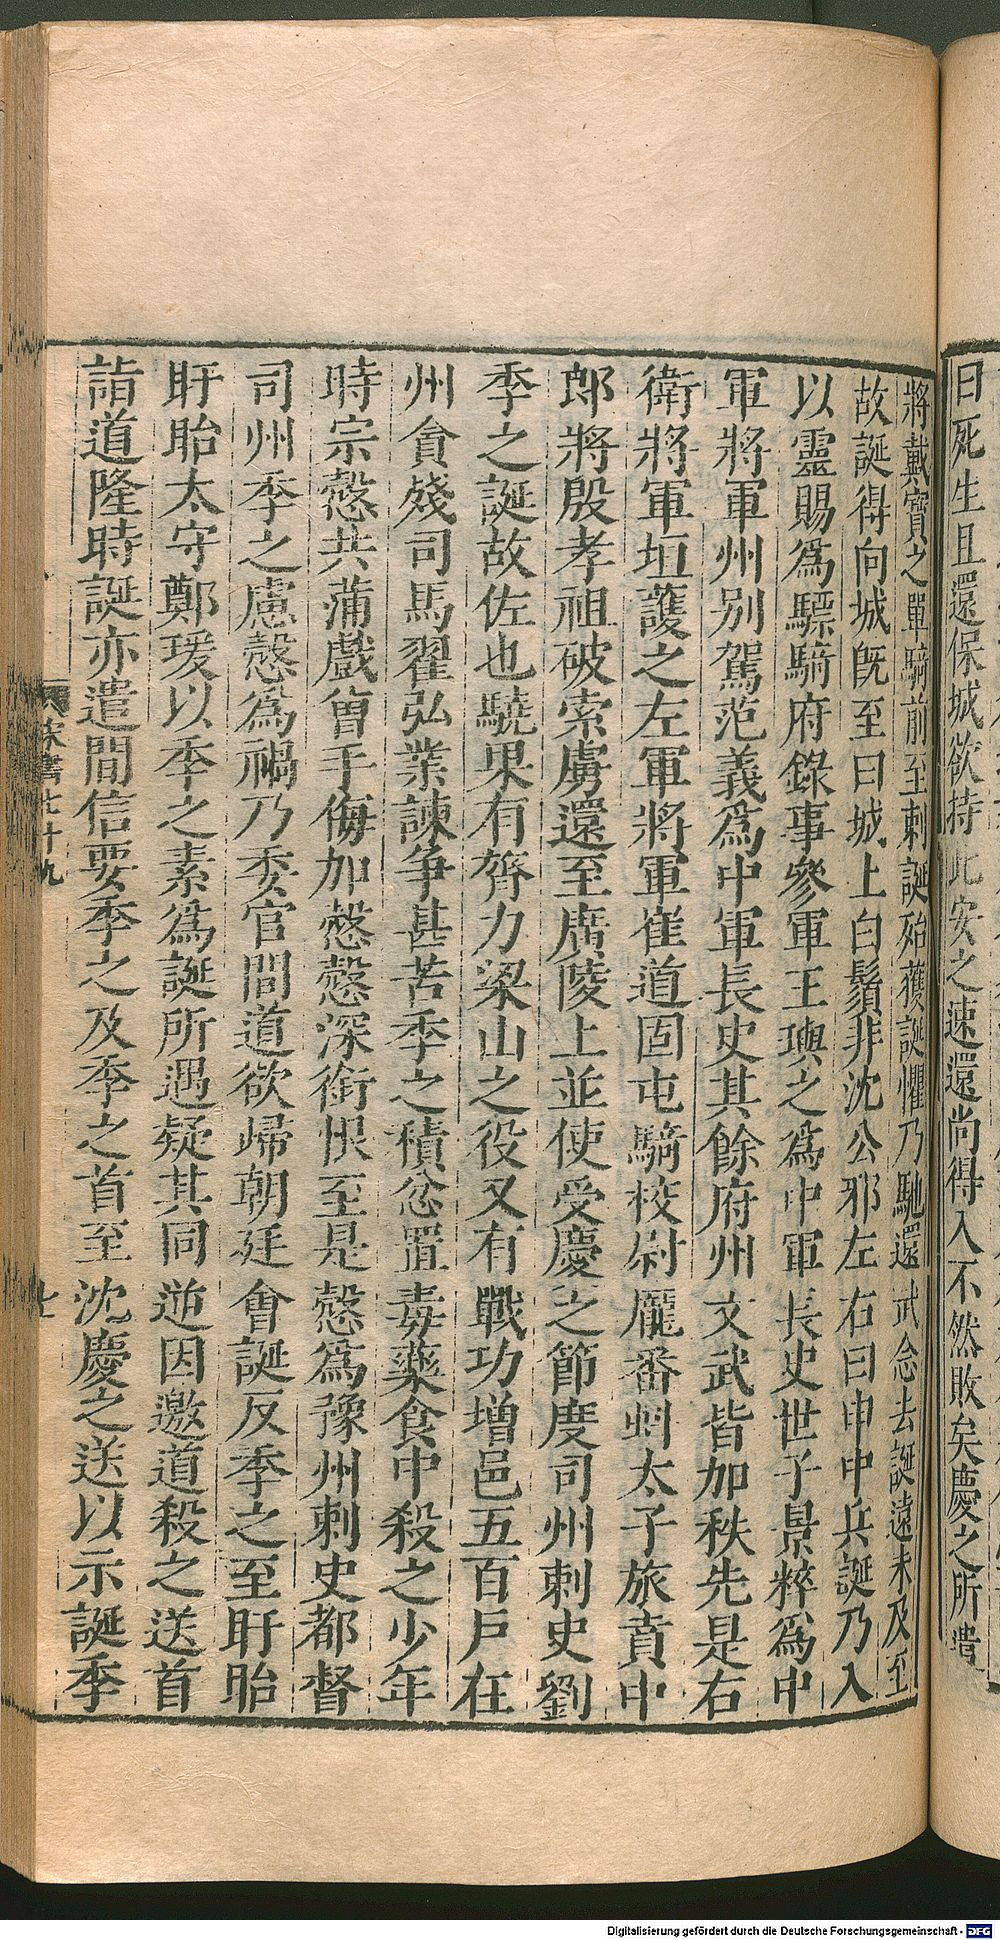 曰死生且還保城欲持此安之速還尚得入不然敗矣慶之所遣
將戴寳之單騎前至刺誕殆獲誕懼乃馳還武念去誕遠未及至
故誕得向城旣至曰城上白鬚非沈公邪左右曰申中兵誕乃入
以靈賜爲驃騎府錄事參軍王璵之爲中軍長史世子景粹爲中
軍將軍州别駕范義爲中軍長史其餘府州文武皆加秩先是右
衛將軍垣護之左軍將軍崔道固屯騎校尉龎番虯太子旅賁中
郎將殷孝祖破索虜還至廣陵上並使受慶之節度司州刺史劉
季之誕故佐也驍果有膂力梁山之役又有戰功增邑五百戶在
州貪殘司馬翟弘業諫争甚苦季之積忿置毒藥食中殺之少年
時宗愨共蒲戲曾手侮加愨愨深銜恨至是愨爲豫州刺史都督
司州季之慮愨爲禍乃委官間道欲歸朝廷會誕反季之至盱眙
盱眙太守鄭瑗以季之素爲誕所遇疑其同逆因邀道殺之送首
詣道隆時誕亦遣間信要季之及季之首至沈慶之送以示誕季
宋書七十九
七
Digitalisierung gefördert durch die Deutsche Forschungsgemeinschaft - DFG